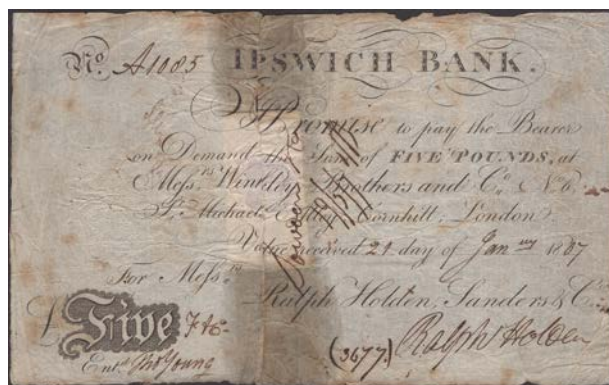 No. A1085 IPSWICH BANK.
I Promise to pay the Bearer
on Demand the Sum of FIVE POUNDS, at
Mess.rs Brothers and Co. No. 6,
St. Michael's Alley Cornhill, London
Value received 21 day of Janry 1807
For Mess.rs
Ralph Holden, Sanders & Co.
£ Five
Entd. Thos Young (3677) Ralph Holden